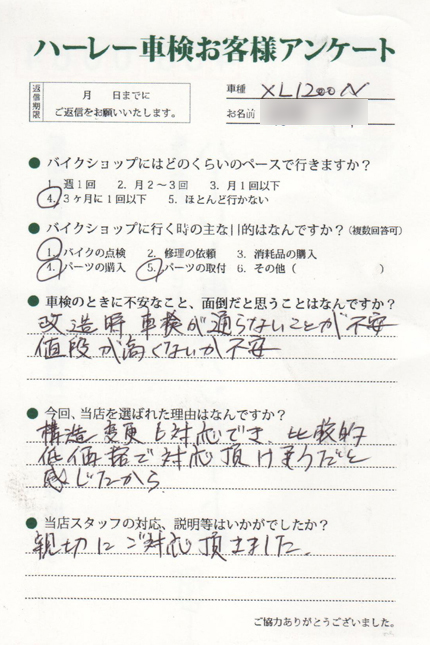 ハーレー車検お客様アンケート
返信期限
月　　日までに
ご返信をお願いいたします。
車種 XL1200N
お名前
● バイクショップにはどのくらいのペースで行きますか？
1. 週1回　2. 月2～3回　3. 月1回以下
4. 3ヶ月に1回以下　5. ほとんど行かない
● バイクショップに行く時の主な目的はなんですか？（複数回答可）
1. バイクの点検　2. 修理の依頼　3. 消耗品の購入
4. パーツの購入　5. パーツの取付　6. その他（　　　　　　　）
● 車検のときに不安なこと、面倒だと思うことはなんですか？
改造時車検が通らないことが不安
値段が高くないか不安
● 今回、当店を選ばれた理由はなんですか？
構造変更も対応でき、比較的
低価格で対応頂けそうだと
感じたから
● 当店スタッフの対応、説明等はいかがでしたか？
親切にご対応頂きました。
ご協力ありがとうございました。